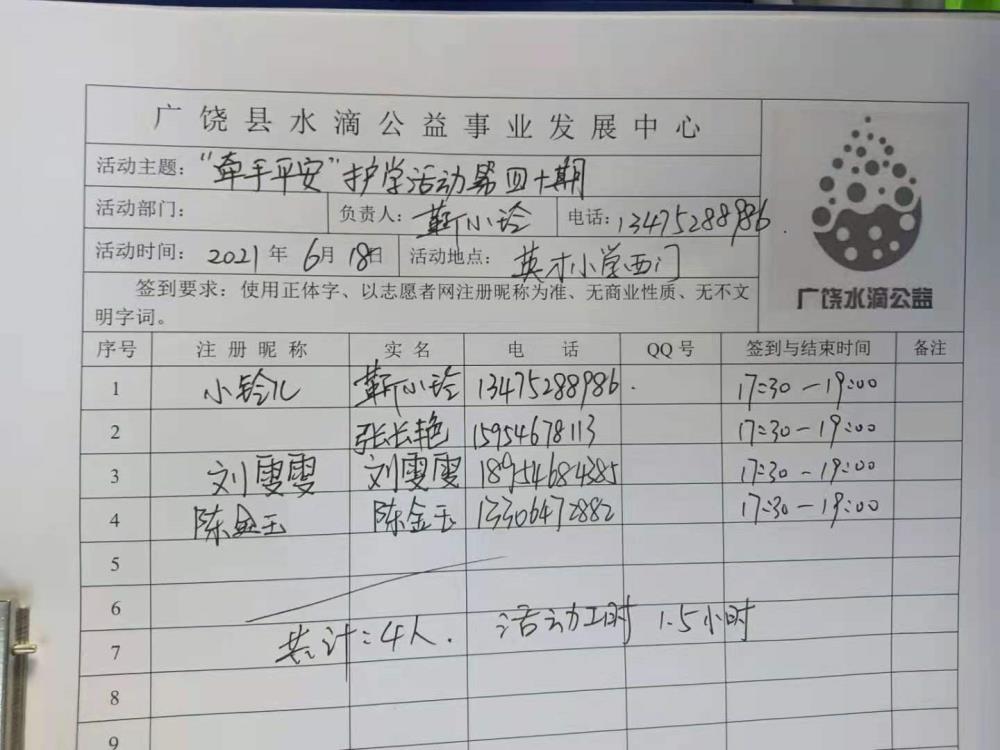 广饶县水滴公益事业发展中心
活动主题：“牵手平安”护学活动第四十期
活动部门： 负责人：靳小玲 电话：13475288986
活动时间：2021年6月18日 活动地点：英才小学西门
签到要求：使用正体字、以志愿者网注册昵称为准、无商业性质、无不文
明字词。
广饶水滴公益
序号 注册昵称 实名 电话 QQ号 签到与结束时间 备注
1 小铃儿 靳小玲 13475288986 17:30-19:00
2 张长艳 15954678113 17:30-19:00
3 刘雯雯 刘雯雯 18954684385 17:30-19:00
4 陈金玉 陈金玉 13306472882 17:30-19:00
5
6
共计：4人. 活动工时 1.5小时
7
8
9